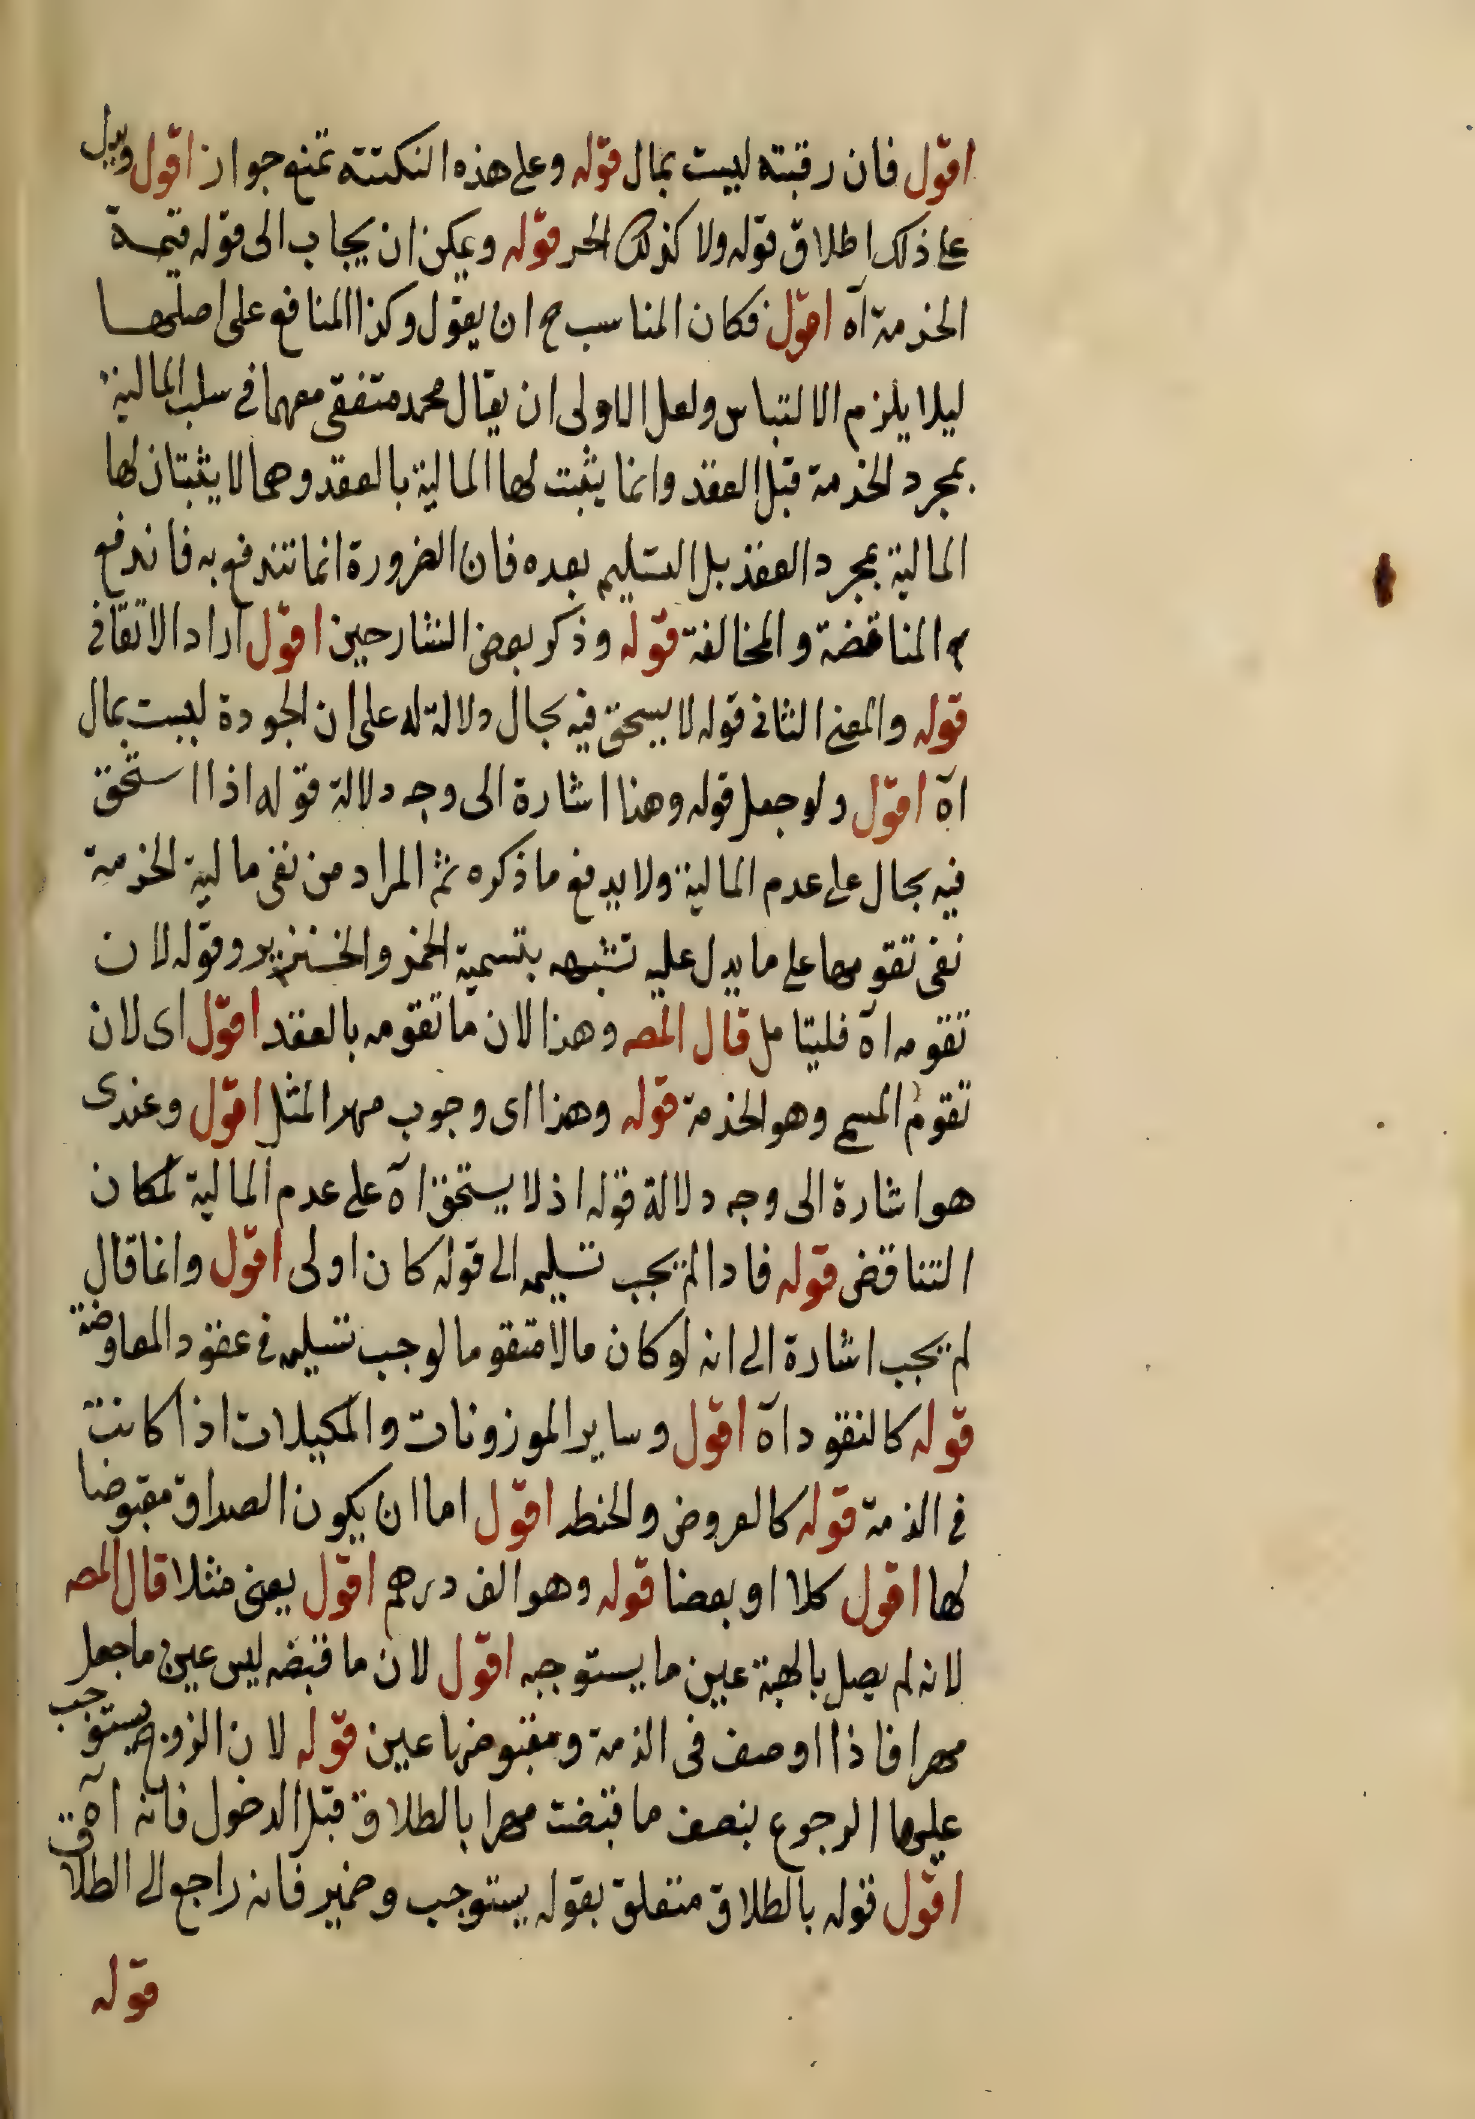 اقول فان رقبته ليست بمال قوله وعلى هذه النكتته تمنع جواز اقول ويدل
على ذلك اطلاق قوله ولا كذلك الحر قوله ويمكن ان يجاب الى قوله قيمة
الخدمة آه اقول فكان المناسب ح ان يقول وكذا المنافع على اصلهما
ليلا يلزم الالتباس ولعل الاولى ان يقال محمد متفقى معهما فى سلب المالية
بمجرد الخدمة قبل العقد وانما يثبت لها المالية بالعقد وهما لا يثبتان لها
المالية بمجرد العقد بل التسليم بعده فان الضرورة انما تندفع به فاندفع
المناقضة والمخالفة قوله وذكر بعض الشارحين اقول اراد الاتقانى
قوله والمعنى الثانى قوله لا يستحق فيه بحال دلالة له على ان الجودة ليست بمال
آه اقول ولو جعل قوله وهنا اشارة الى وجه دلالة قوله اذا استحق
فيه بحال على عدم المالية ولا يدفع ما ذكره ثم المراد من نفى مالية الخدمة
نفى تقومها على ما يدل عليه تشبهه بتسمية الخمر والخنزير وقوله لان
تقومه آه فليتامل قال المصه وهذا لان ما تقومه بالعقد اقول اى لان
تقوم المسمى وهو الخدمة قوله وهذا اى وجوب مهر المثل اقول وعندى
هو اشارة الى وجه دلالة قوله اذ لا يستحق آه على عدم المالية لمكان
التناقض قوله فاذا لم يجب تسليمه الى قوله كان اولى اقول وانما قال
لم يجب اشارة الى انه لو كان مالا متقوما لوجب تسليمه فى عقود المعاوضة
قوله كالنقود آه اقول وساير الموزونات والمكيلات اذا كانت
فى الذمة قوله كالعروض والحنطه اقول اما ان يكون الصداق مقبوضا
لها اقول كلا او بعضا قوله وهو الف درهم اقول يعنى مثلا قال المصه
لانه لم يصل بالهبة عين ما يستوجبه اقول لان ما قبضه ليس عين ما جعل
مهرا فاذا اوصف فى الذمة ومقبوضها عين قوله لان الزوج يستوجب
عليها الرجوع بنصف ما قبضت مهرا بالطلاق قبل الدخول فانه آه
اقول قوله بالطلاق متعلق بقوله يستوجب وضمير فانه راجع الى الطلاق
قوله